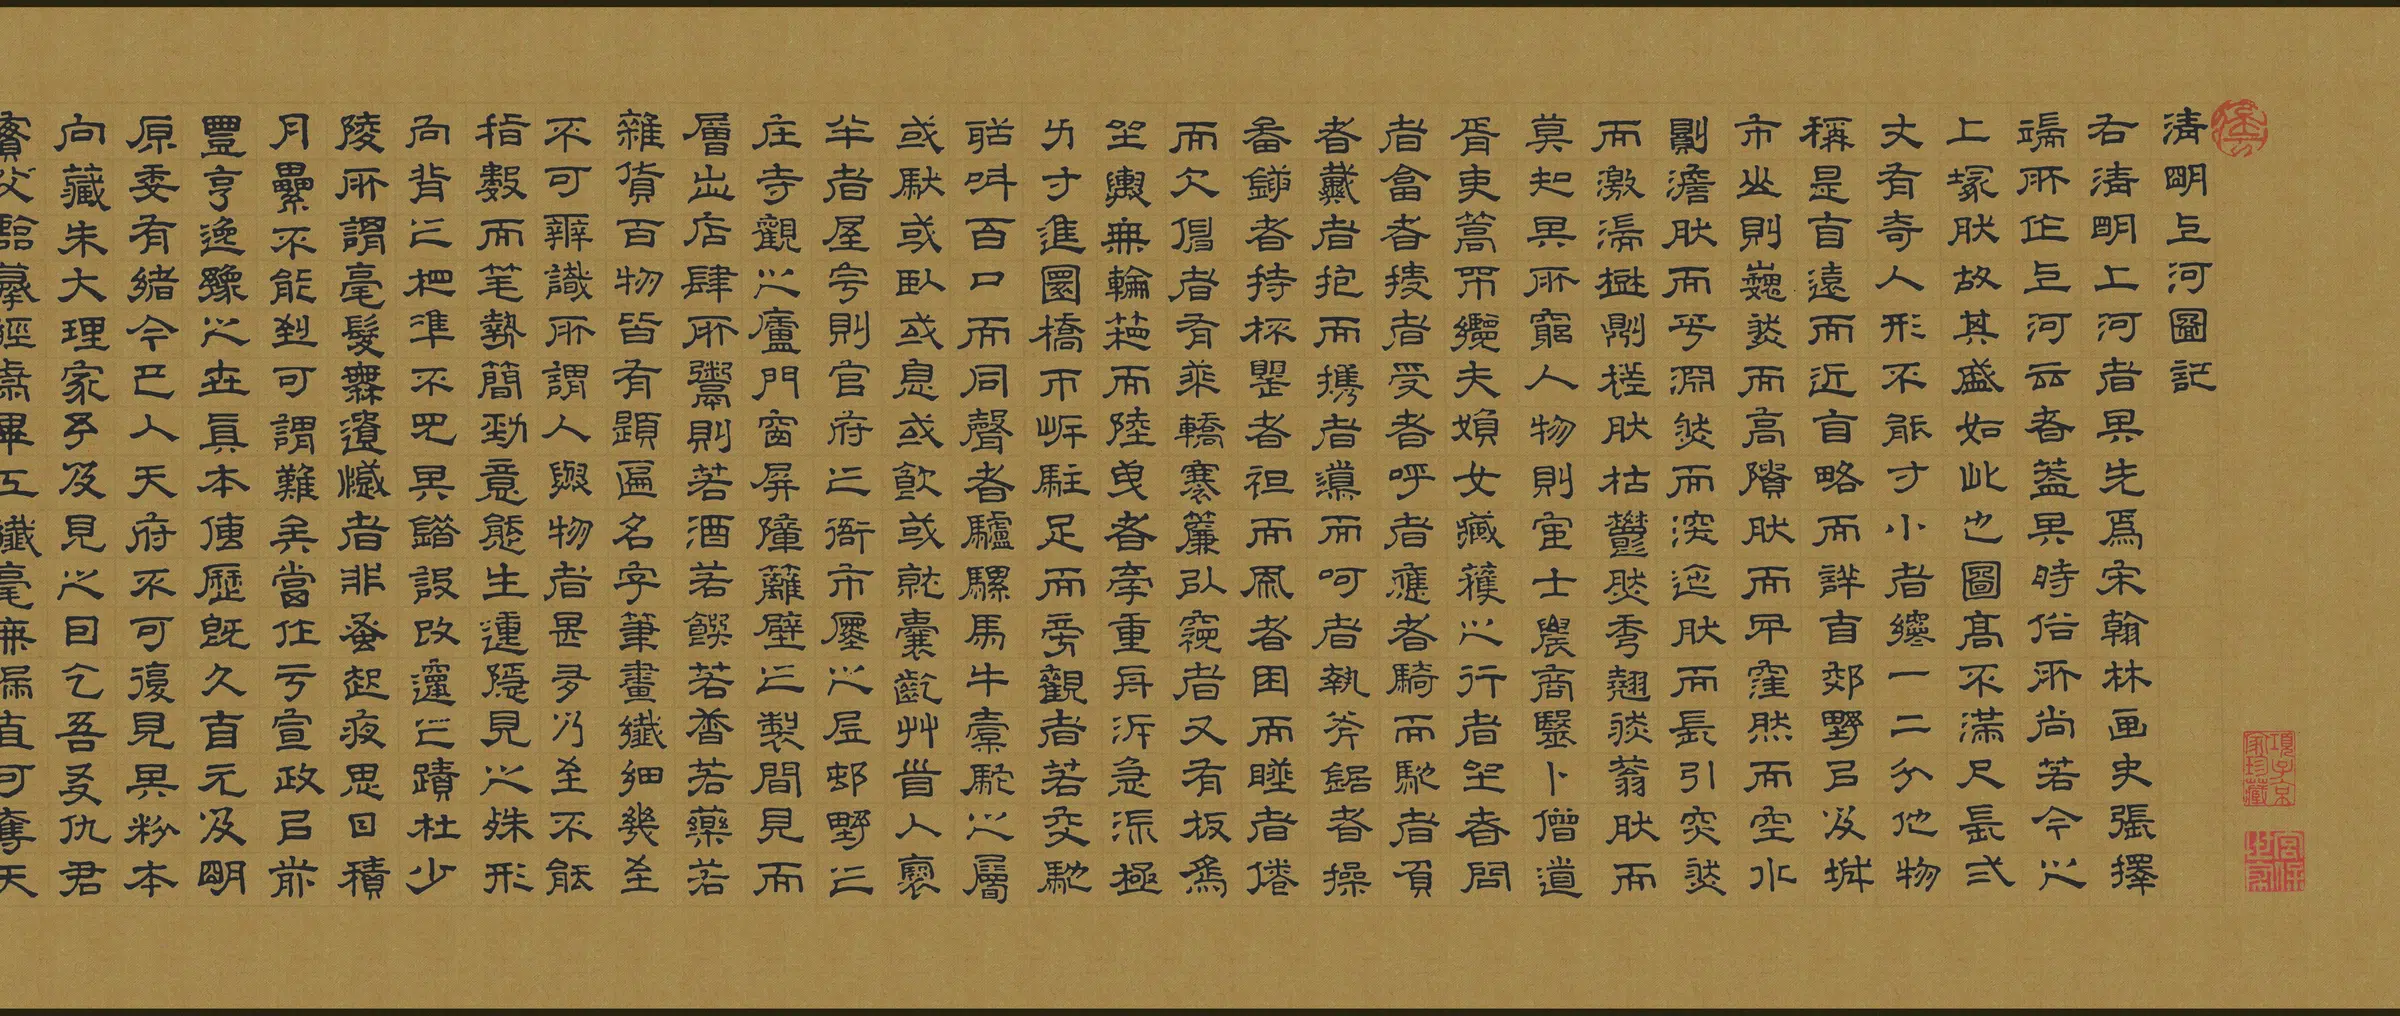 清明上河圖記
右清明上河者其先爲宋翰林画史張擇
端所作上河云者蓋其時俗所尚若今之
上塚然故其盛如此也圖高不滿尺長弍
丈有奇人形不能寸小者纔一二分他物
稱是自遠而近自略而詳自郊野以及城
市山則巍然而高隤然而卑窪然而空水
則澹然而平淵然而深迤然而長引突然
而激湍樹則槎然枯鬱然秀翹然蓊然而
莫知其所窮人物則官士農商醫卜僧道
胥吏篙帀纜夫婦女臧獲之行者坐者問
者畣者授者受者呼者應者騎而馳者負
者戴者抱而攜者導而呵者執斧鋸者操
畚鍤者持杯罌者袒而風者困而睡者倦
而欠伸者有乘轎褰簾以窺者又有板爲
坐輿無輪箱而陸曳者牽重舟泝急流極
力寸進圜橋帀岸駐足而旁觀者若交馳
聒叫百口而同聲者驢騾馬牛橐駝之屬
或馱或臥或息或飲或就囊齕艸首入囊
半者屋宇則官府之衙市廛之居邨野之
庄寺觀之廬門窗屏障籬壁之製間見而
層出店肆所鬻則若酒若饌若香若藥若
雜貨百物皆有題匾名字筆畫纖細幾至
不可辨識所謂人與物者甚多乃至不能
指數而筆勢簡勁意態生運隱見之殊形
向背之相準不見其錯設改竄之蹟杜少
陵所謂毫髮無遺憾者非蚤起夜思日積
月累不能到可謂難矣當作于宣政以前
豐亨逸豫之世真本傳歷既久自元及明
原委有緒今已入天府不可復見其粉本
向藏朱大理家予及見之曰乞吾友仇君
實父臨摹經歲畢工纖毫無漏直可奪天
項子京家珍藏
宮保世家